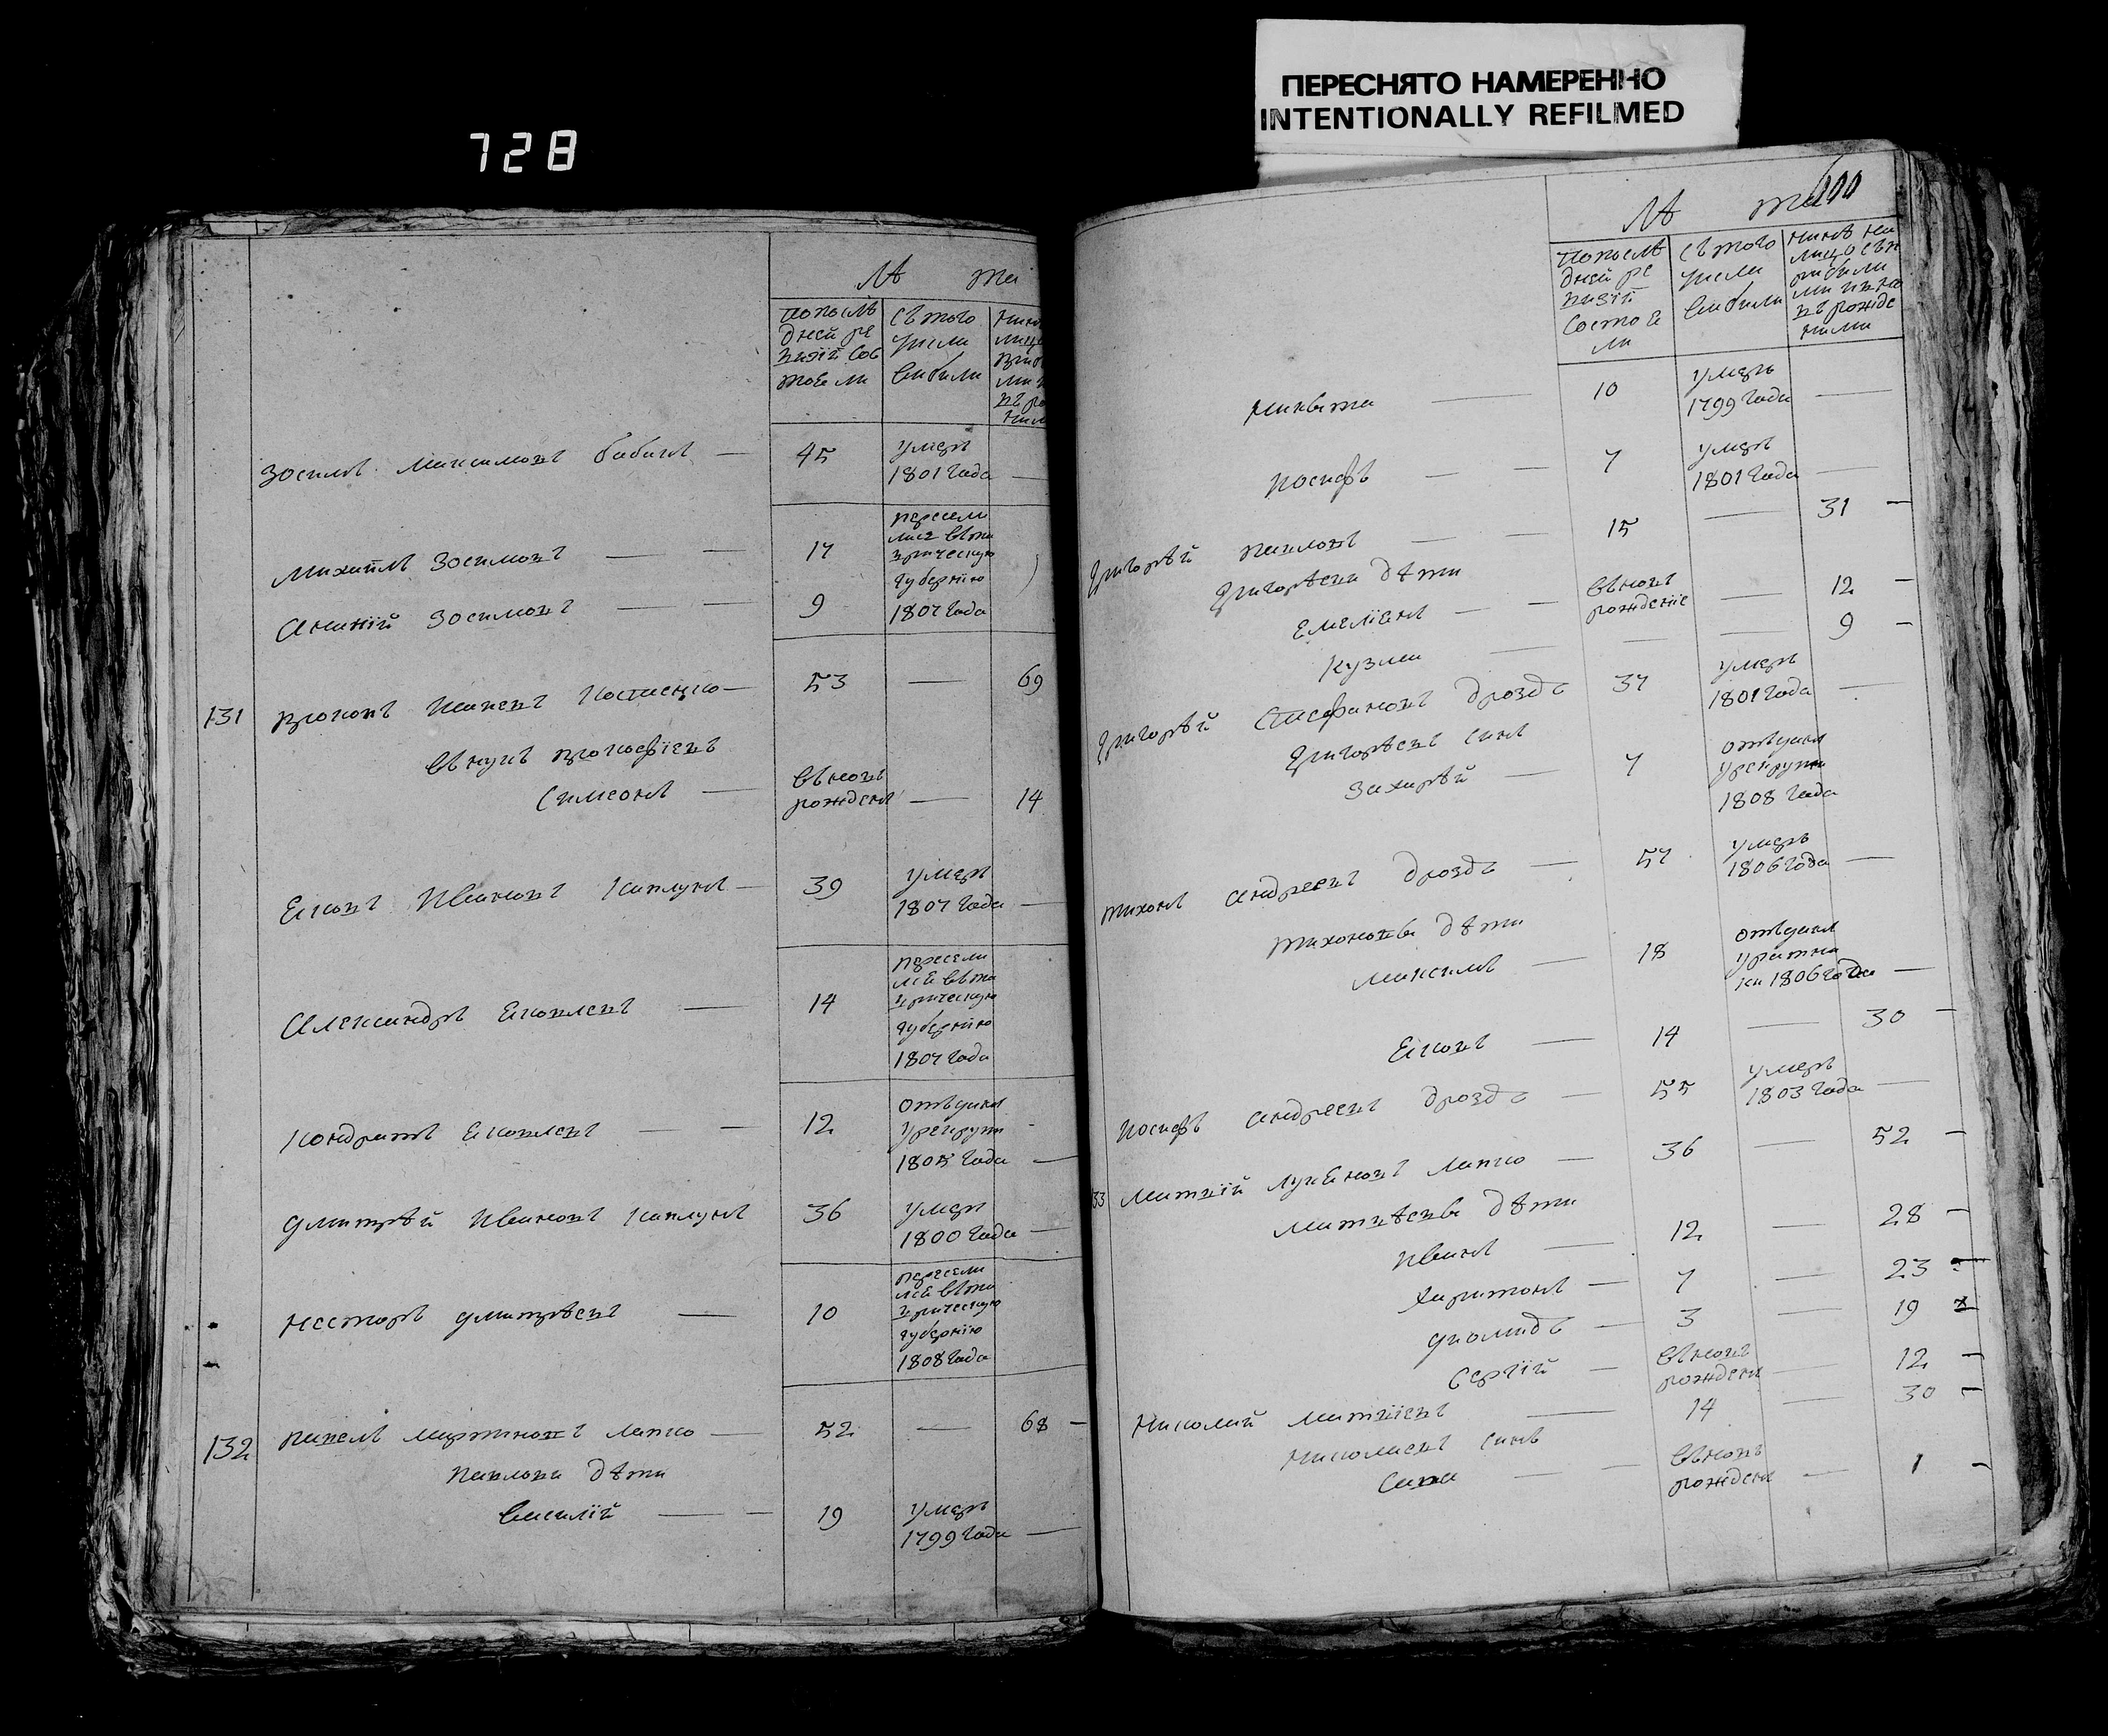 728
ПЕРЕСНЯТО НАМЕРЕННО
INTENTIONALLY REFILMED
Лѣ та
попослѣ
дней ре
визіи сос
тоели
съ того
числа
выбыли
Зосимъ Максимовъ бабичъ — 45 умеръ
1801 года —
Михаилъ Зосимовъ — — 17 пересели
лись въ та
врическую
губернию
Ананій Зосимовъ — — 9 1807 года
131 Прокопъ Ивановъ Костенко — 53 — 69
внукъ прокофіевъ
Симеонъ — вновь
рожденъ — 14
Ековъ Ивановъ Каплунъ — 39 умеръ
1807 года —
Александръ Ековлевъ — 14 пересели
лсе въ та
врическую
губернию
1807 года
Кондратъ Ековлевъ — — 12 отъданъ
урекруты
1805 года —
Дмитрѣй Ивановъ Каплунъ 36 умеръ
1800 года —
Несторъ Дмитрѣевъ — 10 пересели
лсе въ та
врическую
губернию
1808 года
132 Павелъ Мартиновъ Лапко — 52 — 68 —
Павлова дѣти
Василій — — 19 умеръ
1799 года —
Лѣ та
попослѣ
дней ре
визіи
состое
ли
съ того
числа
выбыли
Никита — 10 умеръ
1799 года —
Иосифъ — — 7 умеръ
1801 года —
Григорѣй Павловъ — — 15 — 31 —
Григорѣева дѣти
Емелiенъ — — вновь
рождение — 12 —
Кузма — — — 9 —
Григорѣй Стефановъ Дроздъ 37 умеръ
1801 года —
Григорѣевъ синъ
Захарѣй — 7 отъданъ
урекруты
1808 года
Тихонъ Андреевъ Дроздъ — 57 умеръ
1806 года —
Тихоновы дѣти
Максимъ — 18 отъданъ
уратни
ки 1806 года —
Ековъ — 14 — 30 —
Иосифъ Андреевъ Дроздъ — 55 умеръ
1803 года —
33 Матвій Лукеновъ Лапко — 36 — 52 —
Матвѣевы дѣти
Иванъ — 12 — 28 —
Харитонъ — 7 — 23
Диомидъ — 3 — 19
Сергій — вновь
рожденъ — 12 —
Николай Матвіевъ — 14 — 30 —
Николаевъ синъ
Сава — — вновь
рожденъ — 1 —